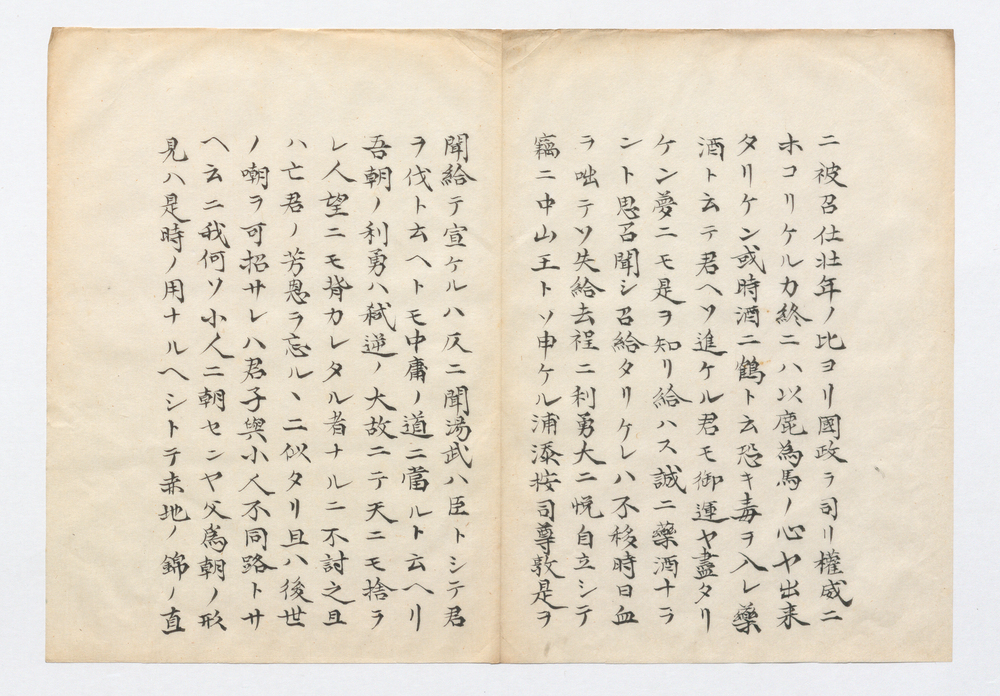 ニ被召仕壮年ノ比ヨリ國政ヲ司リ權威ニ
ホコリケルカ終ニハ以鹿為馬ノ心ヤ出来
タリケン或時酒ニ鶴ト云恐キ毒ヲ入レ藥
酒ト云テ君ヘソ進ケル君モ御運ヤ盡タリ
ケン夢ニモ是ヲ知リ給ハス誠ニ藥酒ナラ
ント思召聞シ召給タリケレハ不移時日血
ヲ咄テソ失給去程ニ利勇大ニ悦自立シテ
竊ニ中山王トソ申ケル浦添按司尊敦是ヲ
聞給テ宣ケルハ仄ニ聞湯武ハ臣トシテ君
ヲ伐ト云ヘトモ中庸ノ道ニ當ルト云ヘリ
吾朝ノ利勇ハ弑逆ノ大故ニテ天ニモ捨ラ
レ人望ニモ背カレタル者ナルニ不討之且
ハ亡君ノ芳恩ヲ忘ルヽニ似タリ且ハ後世
ノ嘲ヲ可招サレハ君子與小人不同路トサ
ヘ云ニ我何ソ小人ニ朝センヤ父爲朝ノ形
見ハ是時ノ用ナルヘシトテ赤地ノ錦ノ直